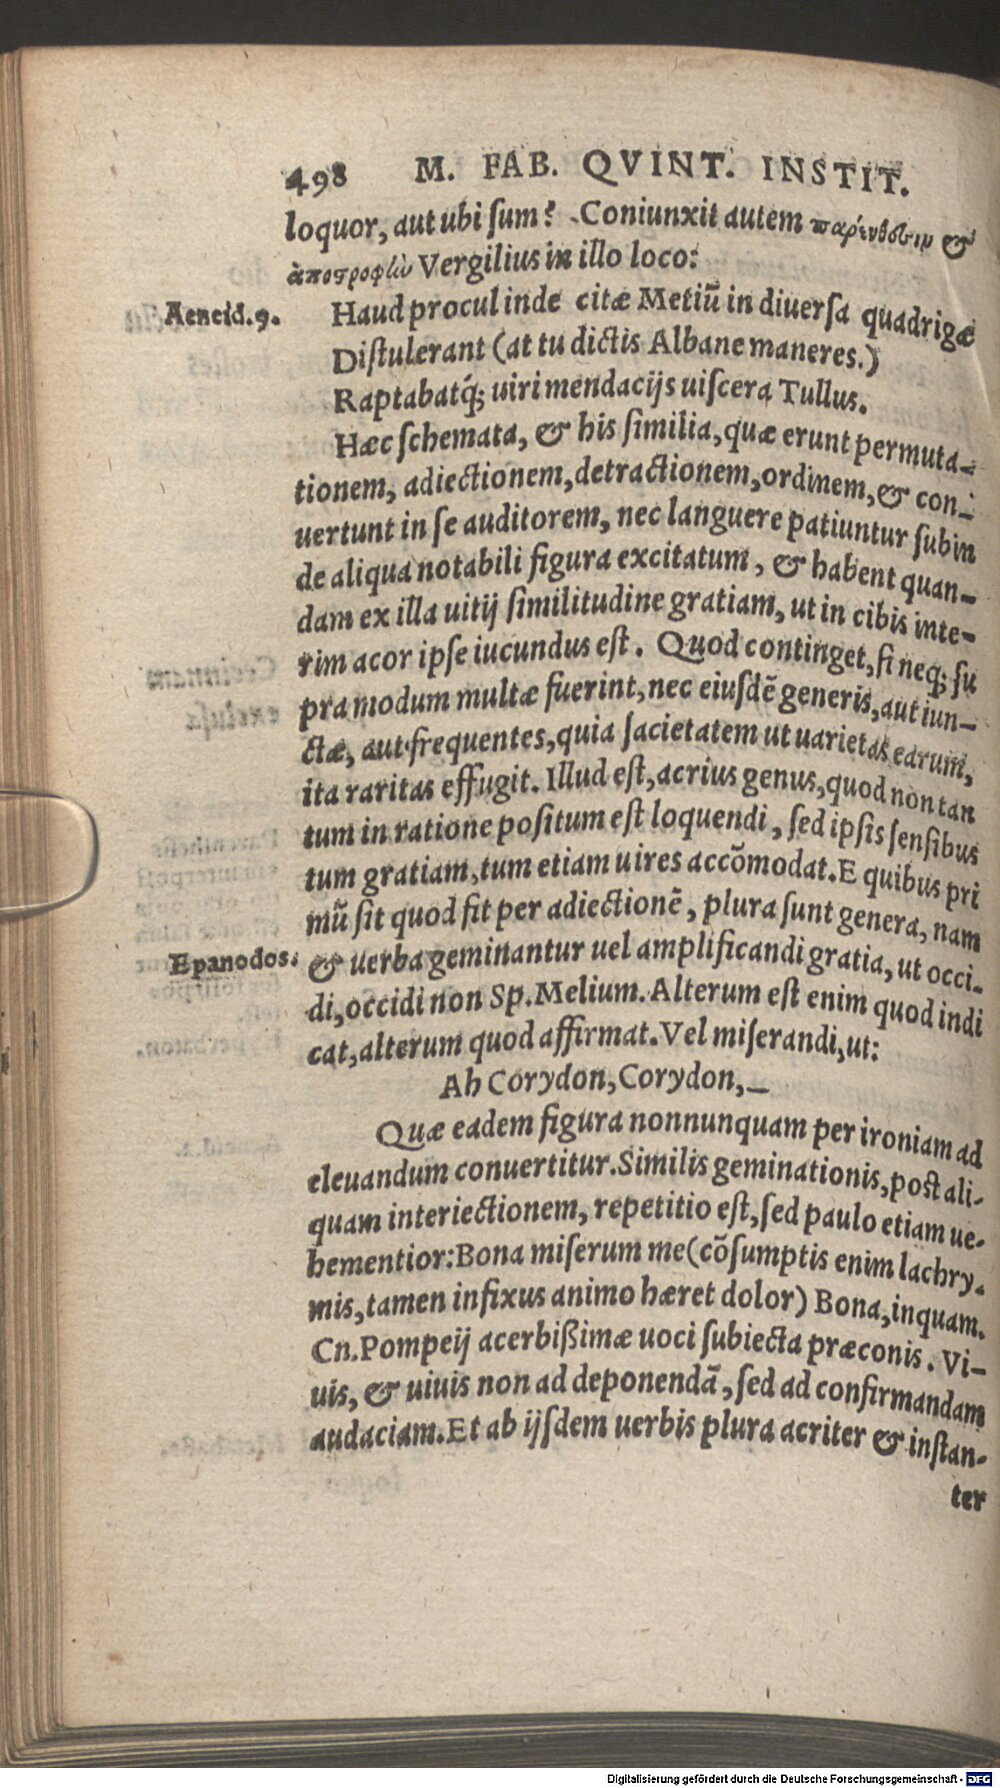 498 M. FAB. QVINT. INSTIT.
loquor, aut ubi ſum? Coniunxit autem παρένθεσιμ &
ἀποστροφὼ Vergilius in illo loco:
Aeneid.9.
Haud procul inde citæ Metiũ in diuerſa quadrigæ
Diſtulerant (at tu dictis Albane maneres.)
Raptabatq́; uiri mendacijs uiſcera Tullus.
Hæc ſchemata, & his ſimilia, quæ erunt permuta-
tionem, adiectionem, detractionem, ordinem, & con-
uertunt in ſe auditorem, nec languere patiuntur ſubin
de aliqua notabili figura excitatum, & habent quan-
dam ex illa uitij ſimilitudine gratiam, ut in cibis inte-
rim acor ipſe iucundus eſt. Quod continget, ſi neq; ſu
pra modum multæ fuerint, nec eiuſdẽ generis, aut iun-
ctæ, aut frequentes, quia ſacietatem ut uarietas earum,
ita raritas effugit. Illud eſt, acrius genus, quod non tan
tum in ratione poſitum eſt loquendi, ſed ipſis ſenſibus
tum gratiam, tum etiam uires accõmodat. E quibus pri
mũ ſit quod fit per adiectionẽ, plura ſunt genera, nam
Epanodos.
& uerba geminantur uel amplificandi gratia, ut occi-
di, occidi non Sp. Melium. Alterum eſt enim quod indi
cat, alterum quod affirmat. Vel miſerandi, ut:
Ah Corydon, Corydon,—
Quæ eadem figura nonnunquam per ironiam ad
eleuandum conuertitur. Similis geminationis, poſt ali-
quam interiectionem, repetitio eſt, ſed paulo etiam ue-
hementior: Bona miſerum me (cõſumptis enim lachry-
mis, tamen infixus animo hæret dolor) Bona, inquam.
Cn. Pompeij acerbißimæ uoci ſubiecta præconis. Vi-
uis, & uiuis non ad deponendã, ſed ad confirmandam
audaciam. Et ab ijſdem uerbis plura acriter & inſtan-
ter
Digitalisierung gefördert durch die Deutsche Forschungsgemeinschaft - DFG